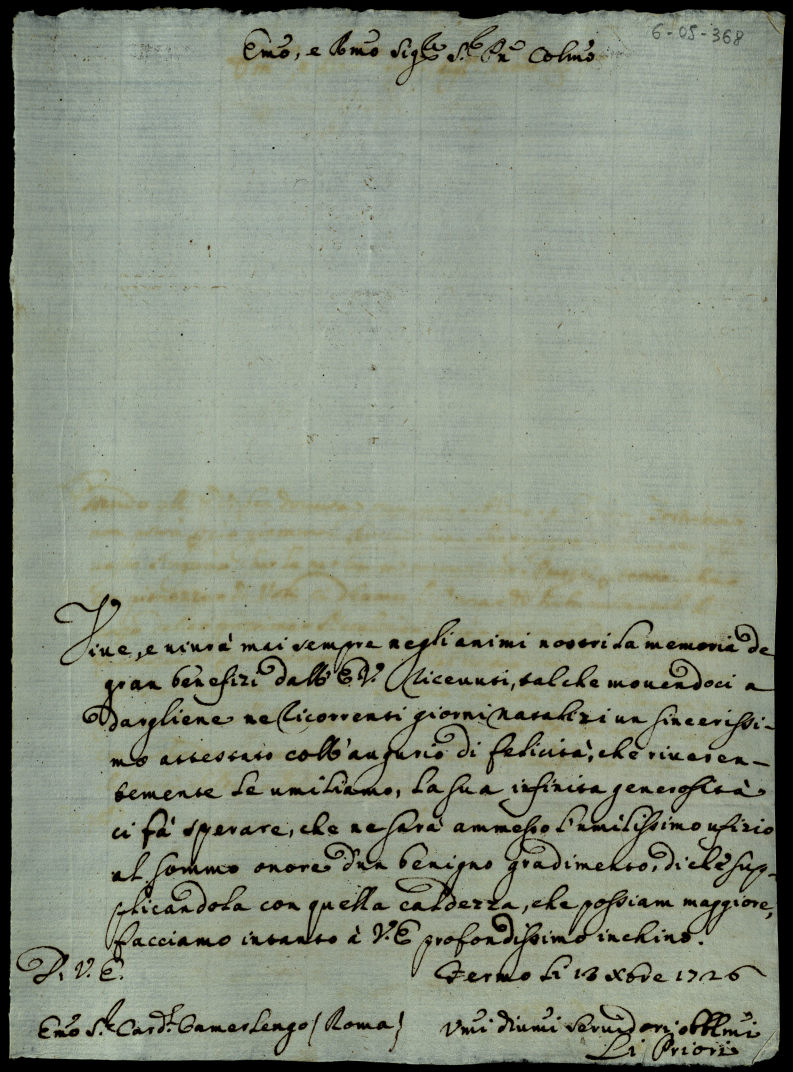 6-05-368
Emo, e Rmo Sigre Sre Pne Colmo
Viue, e uiurà mai sempre negli animi nostri la memoria de
gran benefizi dall' E.V. riceuuti, talche mouendoci a
dargliene ne ricorrenti giorni natalizi un sincerissi-
mo attestato coll'augurio di felicità, che riueren-
temente le umiliamo, la sua infinita generosità
ci fà sperare, che ne sarà ammesso l'umilissimo ufizio
al sommo onore d'un benigno gradimento, di che sup-
plicandola con quella caldezza, che possiam maggiore,
facciamo intanto à V.E. profondissimo inchino.
Di V. E.
Fermo li 13 Xbre 1726
Emo Sre Card. Camerlengo (Roma)
Vmi diumi seruidori obblmi
Li Priori